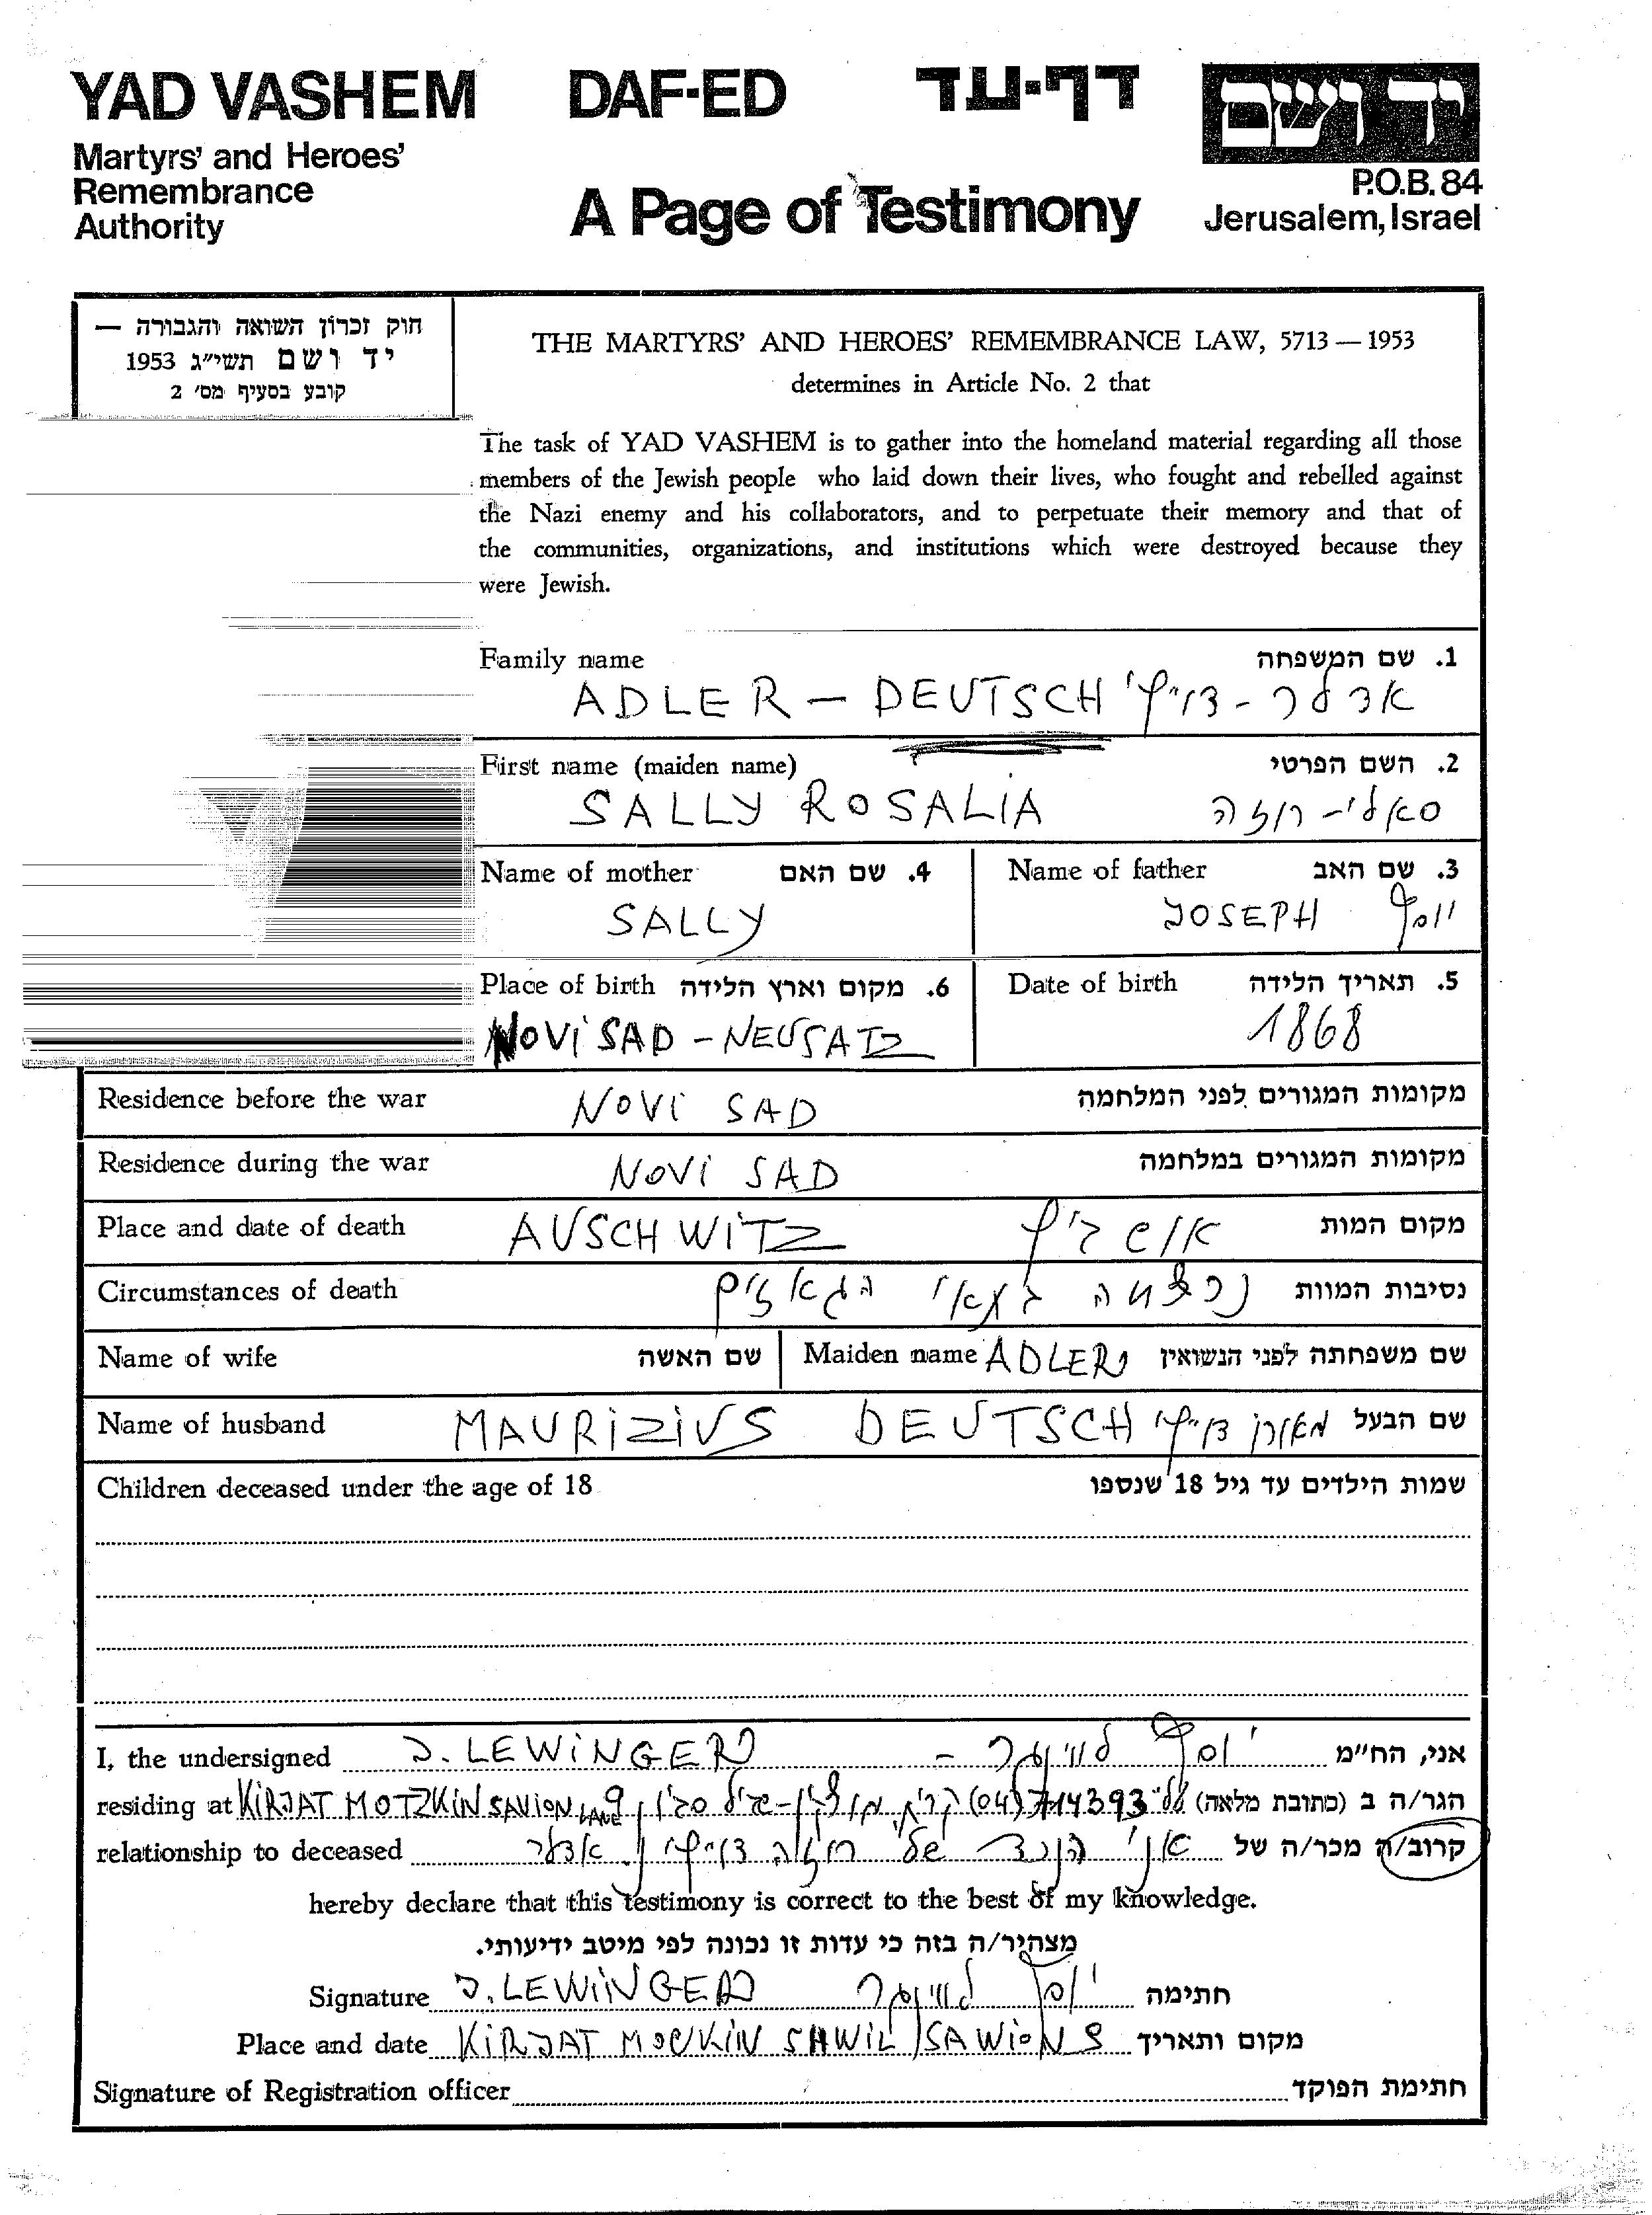 YAD VASHEM DAF-ED דף-עד יד ושם
Martyrs' and Heroes'
Remembrance
Authority
A Page of Testimony
P.O.B. 84
Jerusalem, Israel
חוק זכרון השואה והגבורה —
יד ושם תשי״ג 1953
קובע בסעיף מס׳ 2
THE MARTYRS' AND HEROES' REMEMBRANCE LAW, 5713 — 1953
determines in Article No. 2 that
The task of YAD VASHEM is to gather into the homeland material regarding all those
members of the Jewish people who laid down their lives, who fought and rebelled against
the Nazi enemy and his collaborators, and to perpetuate their memory and that of
the communities, organizations, and institutions which were destroyed because they
were Jewish.
Family name 1. שם המשפחה
ADLER – DEUTSCH אדלר - דויץ'
First name (maiden name) 2. השם הפרטי
SALLY ROSALIA סאלי - רוזה
Name of mother 4. שם האם Name of father 3. שם האב
SALLY JOSEPH יוסף
Place of birth 6. מקום וארץ הלידה Date of birth 5. תאריך הלידה
NOVI SAD - NEUSATZ 1868
Residence before the war NOVI SAD מקומות המגורים לפני המלחמה
Residence during the war NOVI SAD מקומות המגורים במלחמה
Place and date of death AUSCHWITZ אושויץ מקום המות
Circumstances of death נסיבות המוות נרצחה הגאזים
Name of wife שם האשה Maiden name ADLER שם משפחתה לפני הנשואין
Name of husband MAURIZIUS DEUTSCH דויץ' שם הבעל
Children deceased under the age of 18 שמות הילדים עד גיל 18 שנספו
I, the undersigned J. LEWINGER – יוסף לווינגר אני, הח״מ
residing at KIRJAT MOTZKIN SAVION LANE 9 קרית מוצקין - שביל סביון (04) 714393 הגר/ה ב (כתובת מלאה)
relationship to deceased קרוב/ה מכר/ה של אני הנכד של רוזה דויץ' אדלר
hereby declare that this testimony is correct to the best of my knowledge.
מצהיר/ה בזה כי עדות זו נכונה לפי מיטב ידיעותי.
Signature J. LEWINGER יוסף לווינגר חתימה
Place and date KIRJAT MOCKIN SHWIL SAWION 9 מקום ותאריך
Signature of Registration officer חתימת הפוקד